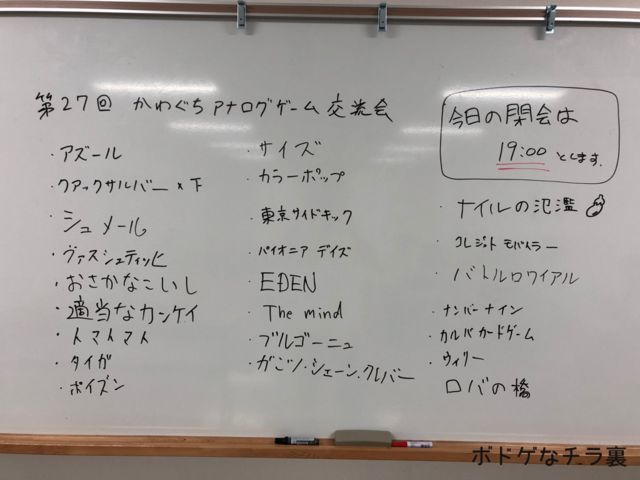 第27回 かわぐちアナログゲーム交流会
・アズール
・クアックサルバー×下
・シュメール
・ヴァスシュティッヒ
・おさかなこいし
・適当なカンケイ
・トマトマト
・タイガ
・ポイズン
・サイズ
・カラーポップ
・東京サイドキック
・パイオニア デイズ
・EDEN
・The mind
・ブルゴーニュ
・がごつ・シェーン・クレバー
今日の閉会は
19:00 とします.
・ナイルの氾濫
・コレジットモバイラー
・バトルロワイアル
・ナンバーナイン
・カルバカードゲーム
・ウィリー
・ロバの橋
ボドゲなチラ裏